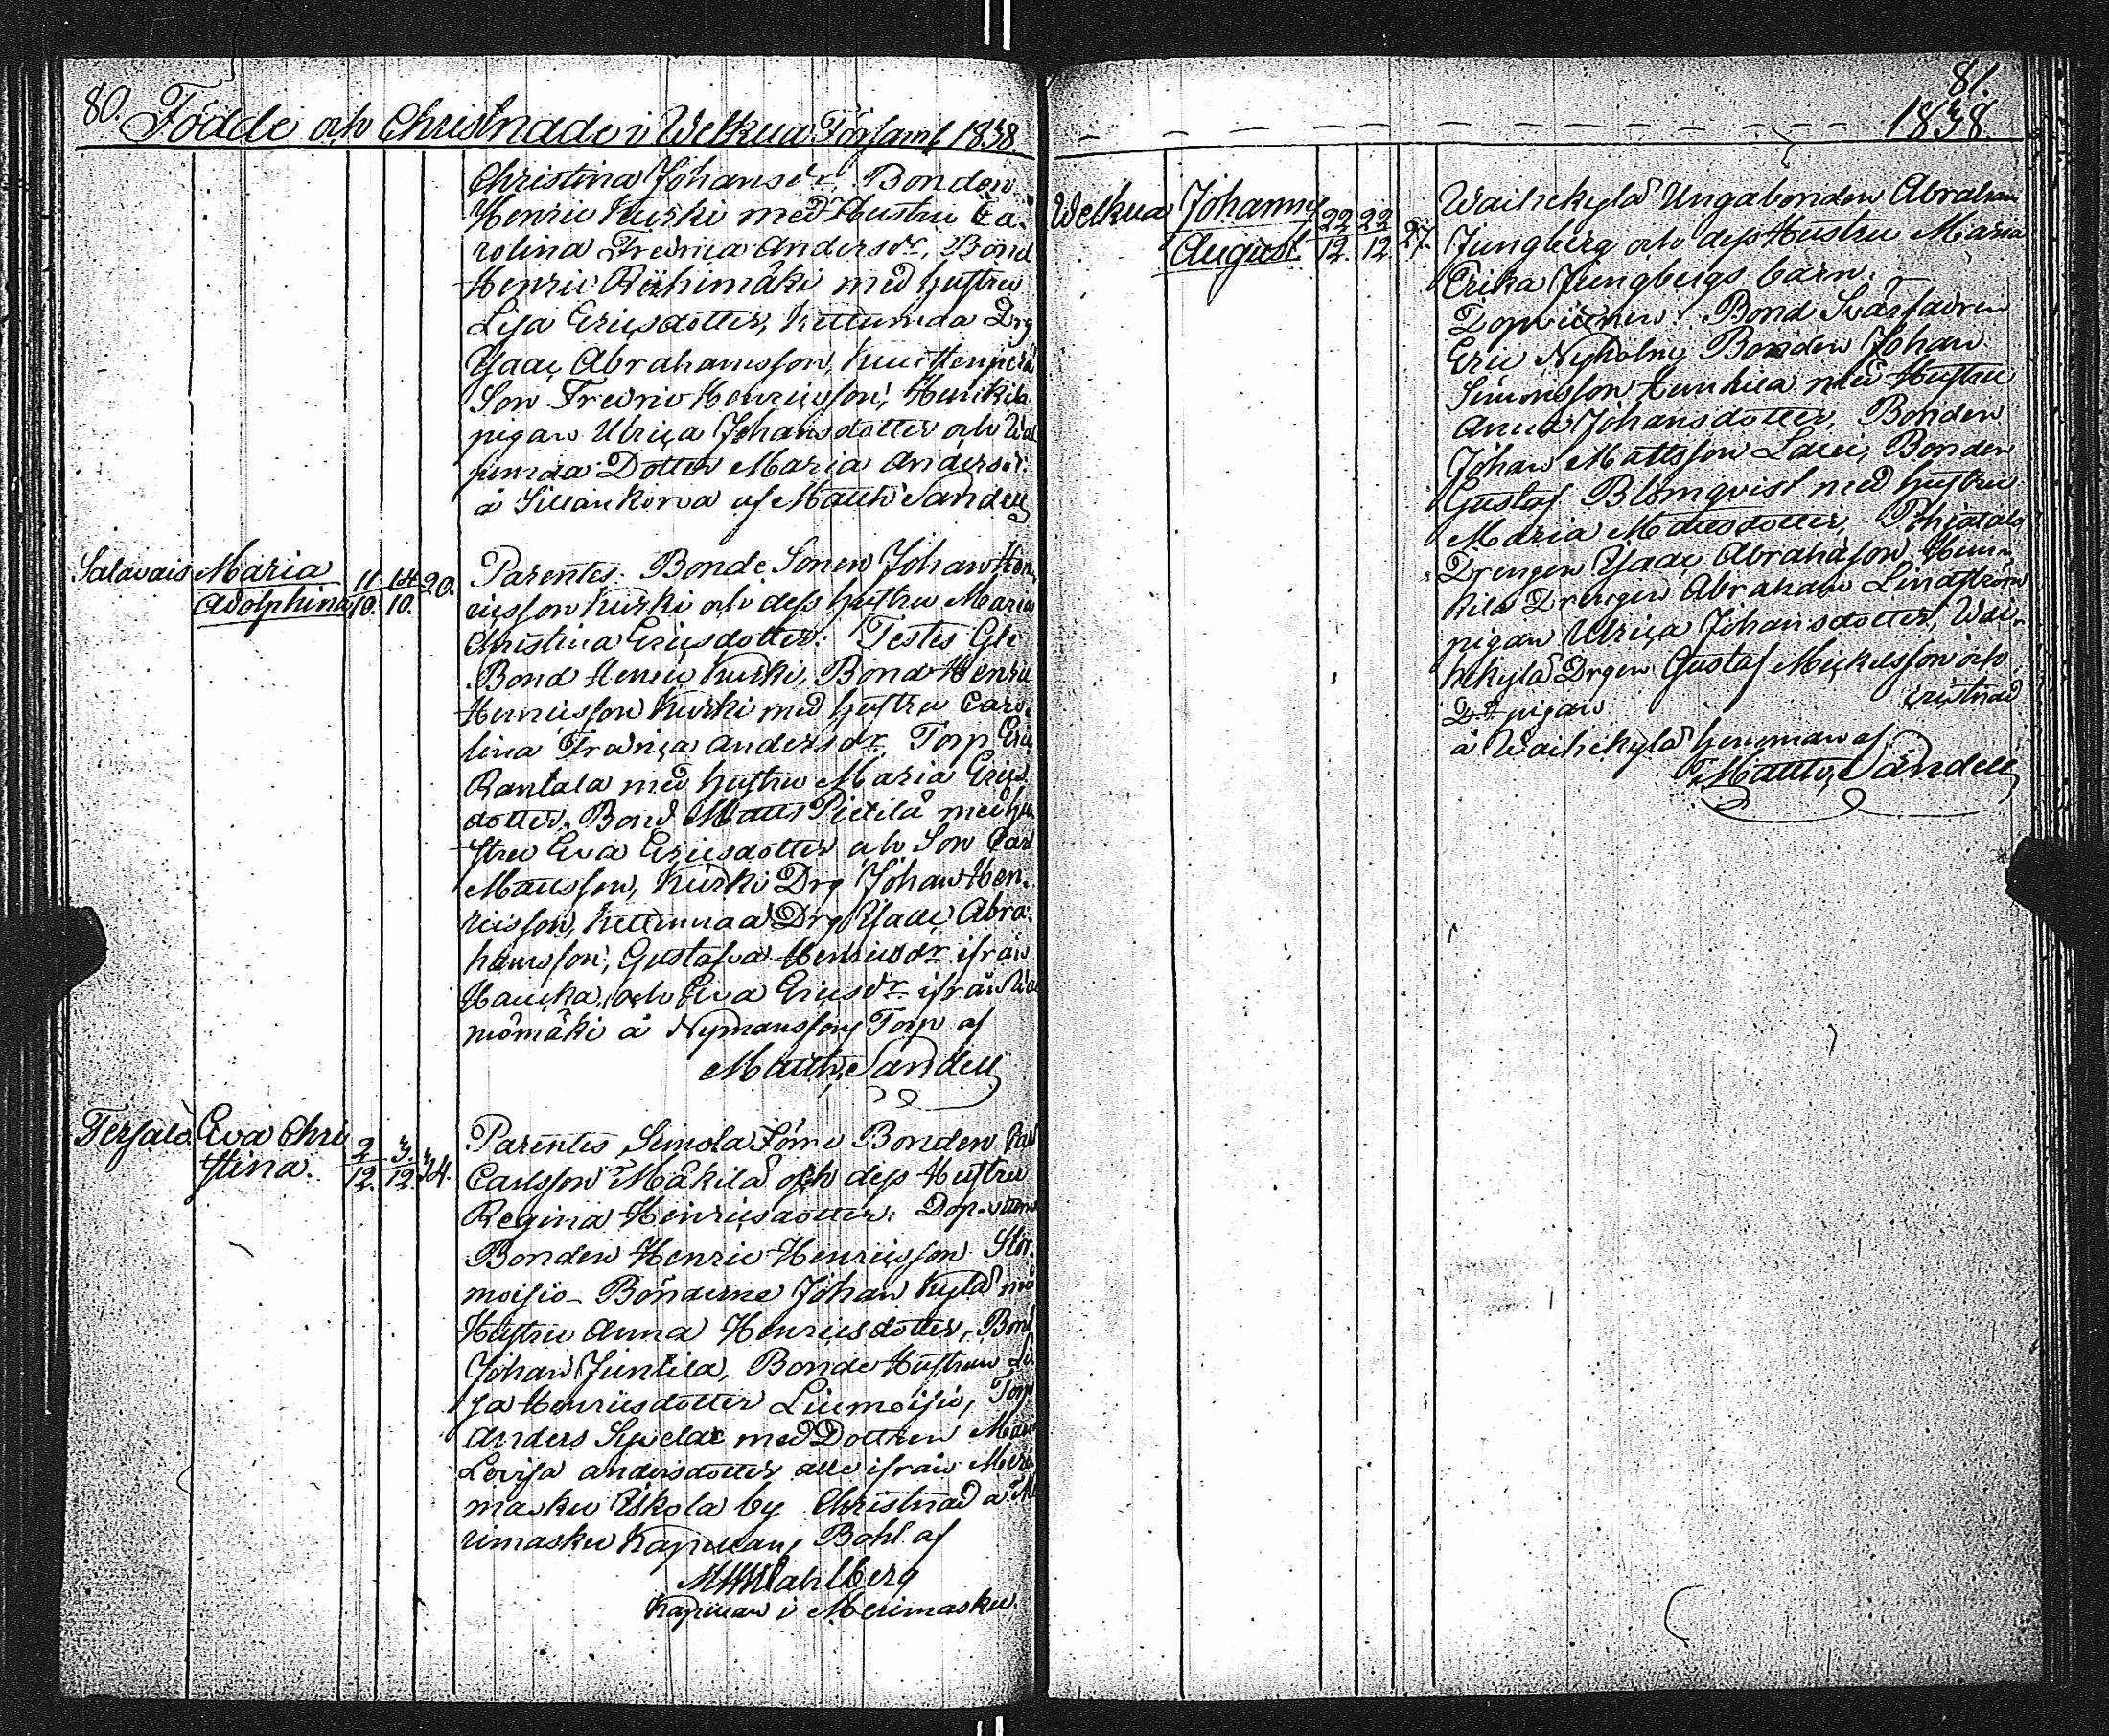 80. Födde och Christnade i Welkua Församl 1838.
Christina Johansdr, Bonden
Henric Kurski med Hustru Ca-
rolina Fredrica Andersdr, Bond
Henric Riihimäki med hustru
Lisa Ericsdotter, Drg
Isaac Abrahamsson,
Son Fredric Henricsson, Heikkilä
pigan Ulrica Johansdotter och
Dotter Maria Andersdr.
å af Matth Sandell
Salavais Maria 11 14 20. Parentes: Bonde Sonen Johan Hen-
Adolphina 10. 10. ricsson Kurki och dess hustru Maria
Christina Ericsdotter: Testes Gle
Bond Henric Kurki, Bond Henric
Henricsson Kurki med hustru Caro-
lina Fredrica Andersdr, Torp Eric
Rantala med hustru Maria Erics-
dotter. Bond Matts Pietilä med hu-
stru Eva Ericsdotter och Son Carl
Mattsson, Kurki Drg Johan Hen-
ricsson, Drg Isaac Abra-
hamsson, Gustafva Henricsdr ifrån
och Eva Ericsdr ifrån
mömäki å Nymanssons Torp af
Matth. Sandell
Tersalo Eva Chri 2 3. 34. Parentes Simola Töme Bonden Carl
stina. 12. 12. Carlsson Mäkilä och dess Hustru
Regina Henricsdotter: Dop-vittnen
Bonden Henric Henricsson Stor-
moisio- Bönderne Johan Kylä
Hustru Anna Henricsdotter, Bond
Johan Juntila, Bonde Hustrun Li-
sa Henricsdotter Liemoisio, Torp
Anders med Dottren
Lovisa Andersdotter alle ifrån Meri-
masku Iskola by Christnad å Me-
rimasku Kapellans Bohl af
Wahlberg
Kapellan i Merimasku
81.
1838.
Welkua Johannes 22 22 27. Waihekylä Ungabonden Abraham
August. 12. 12. Jungberg och dess Hustru Maria
Erika Jungbergs barn.
Dopvittnen: Bond Svärfadren
Eric Nyholm, Bonden Johan
Simonsson med Hustru
Anna Johansdotter, Bonden
Johan Mattsson Lauri, Bonden
Gustaf Blomqvist med hustru
Maria Mattsdotter,
Drengen Isaac Abrahasson, Heik-
kilä Drengen Abraham Lindström
pigan Ulrica Johansdotter, Wai-
hekylä Drgen Gustaf Mickelsson och
Do pigan cristnad
å Waihekylä hemman af
Matth. Sandell